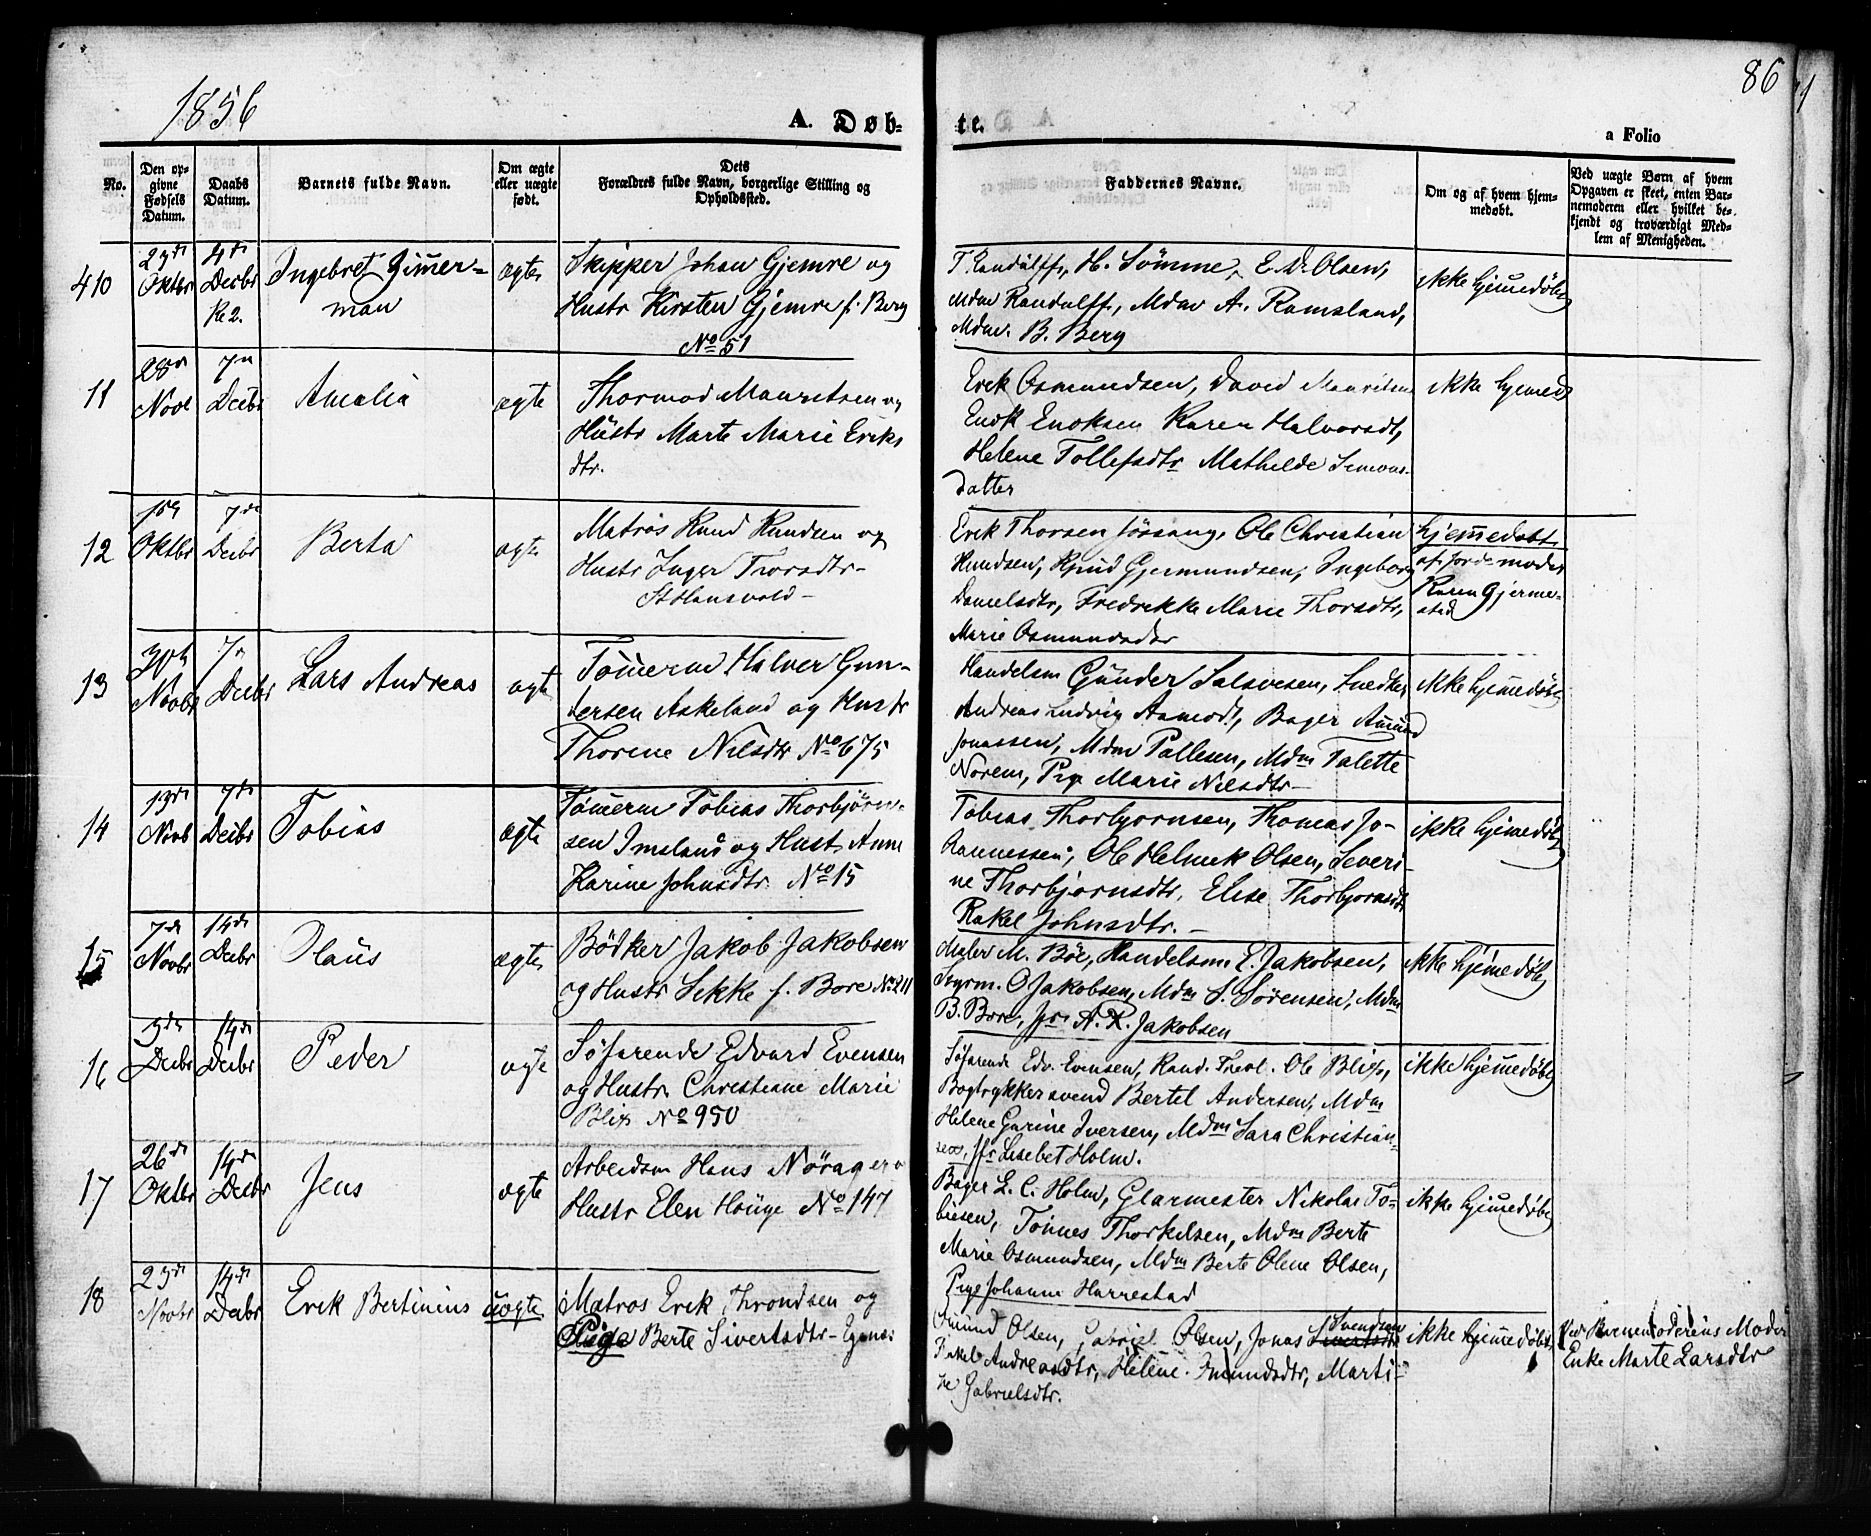 1856
A. Døb-
te.
86
a Folio
No.
Den op-
givne
Fødsels
Datum.
Daabs
Datum.
Barnets fulde Navn.
Om ægte
eller uægte
født.
Dets
Forældres fulde Navn, borgerlige Stilling og
Opholdssted.
Faddernes Navne.
Om og af hvem hjem-
medøbt.
Ved uægte Børn af hvem
Opgaven er skeet, enten Bar-
nemoderen eller hvilket be-
kjendt og troværdigt Med-
lem af Menigheden.
410
Oktbr
4de
Decbr
Kl 2.
Ingebret Zimer-
man
ægte
Skipper Johan Gjemre og
Hustr Kirsten Gjemre f. Berg
No 51
T. Randulff, H. Sömme, E. D. Olsen,
Mdm Randulff, Mdm A. Ramsland,
Mdm. B. Berg
ikke hjemedøbt
11
28de
Novb
7de
Decbr
Amalia
ægte
Thormod Mauritsen og
Hustr Marte Marie Eriks
dtr.
Erik Osmundsen, David Mauritsen
Enok Enoksen Karen Halvorsdt,
Helene Tollefsdtr Mathilde Simons-
datter
ikke hjemed
12
Oktbr
7de
Decbr
Berta
ægte
Matros Knud Knudsen og
Hustr Inger Thorsdtr-
St Hansvold-
Erik Thorsen Jössang, Ole Christian
Knudsen, Knud Gjermundsen, Ingeborg
Danielsdtr, Fredrikke Marie Thorsdtr,
Marie Osmundsdtr
hjemedøbt
af Jordemoder
Karen Gjerme-
sted
13
30te
Novbr
7de
Decbr
Lars Andreas
ægte
Tömerm Halver Gun-
dersen Askeland og Hustr
Thorine Nilsdtr No 675
Handelsm Gunder Salvesen, Snedker
Andreas Ludvig Aamodt, Bager Amund
Jonassen, Mdm Pallesen, Mdm Talette
Norem, Pige Marie Nilsdtr-
ikke hjemedøbt
14
13de
Novb
7de
Decbr
Tobias
ægte
Tömerm Tobias Thorbjörn-
sen Imsland og Hust. Anne
Karine Johnsdtr. No 15
Tobias Thorbjornsen, Thomas Jo-
hannessen, Ole Helmik Olsen, Severi-
ne Thorbjornsdtr, Elise Thorbjornsdt
Rakel Johnsdtr.-
ikke hjemedøbt
15
7de
Novbr
14de
Decbr
Claus
ægte
Bödker Jakob Jakobsen
og Hustr Sekke f. Bore No 211
Maler M. Böe, Handelsm. E. Jakobsen,
Styrm. O Jakobsen, Mdm S. Sörensen, Mdm
B. Bore, Jfr A. K. Jakobsen
ikke hjemedøbt
16
3de
Decbr
14de
Decbr
Peder
ægte
Söfarende Edvard Evensen
og Hustr. Christiane Marie
Blix No 950
Söfarende Edv. Evensen, Kand. Theol. Ole Blix,
Bogtrykkersvend Bertel Andersen, Mdm
Helene Gurine Iversen, Mdm Sara Christian-
sen, Jfr Lisebet Holm.
ikke hjemedøbt
17
26de
Oktbr
14de
Decbr
Jens
ægte
Arbeidsm Hans Nörager o
Hustr Elen Houge No 147
Bager L. C. Holm, Glarmester Nikolai To-
biesen, Tönnes Thorkelsen, Mdm Berte
Marie Osmundsen, Mdm Berte Olene Olsen,
Pige Johanne Harrestad
ikke hjemedøbt
18
Novbr
14de
Decbr
Erik Bertinius
uægte
Matros Erik Throndsen og
Pige Berte Sivertsdtr- Egenæs
Omund Olsen, Gabriel Olsen, Jonas Svendsen
Rakel Andreasdtr, Helene Omundsdtr, Marti-
ne Gabrielsdtr.
ikke hjemedøbt
ved Barnemoderens Moder
Enke Marte Larsdtr